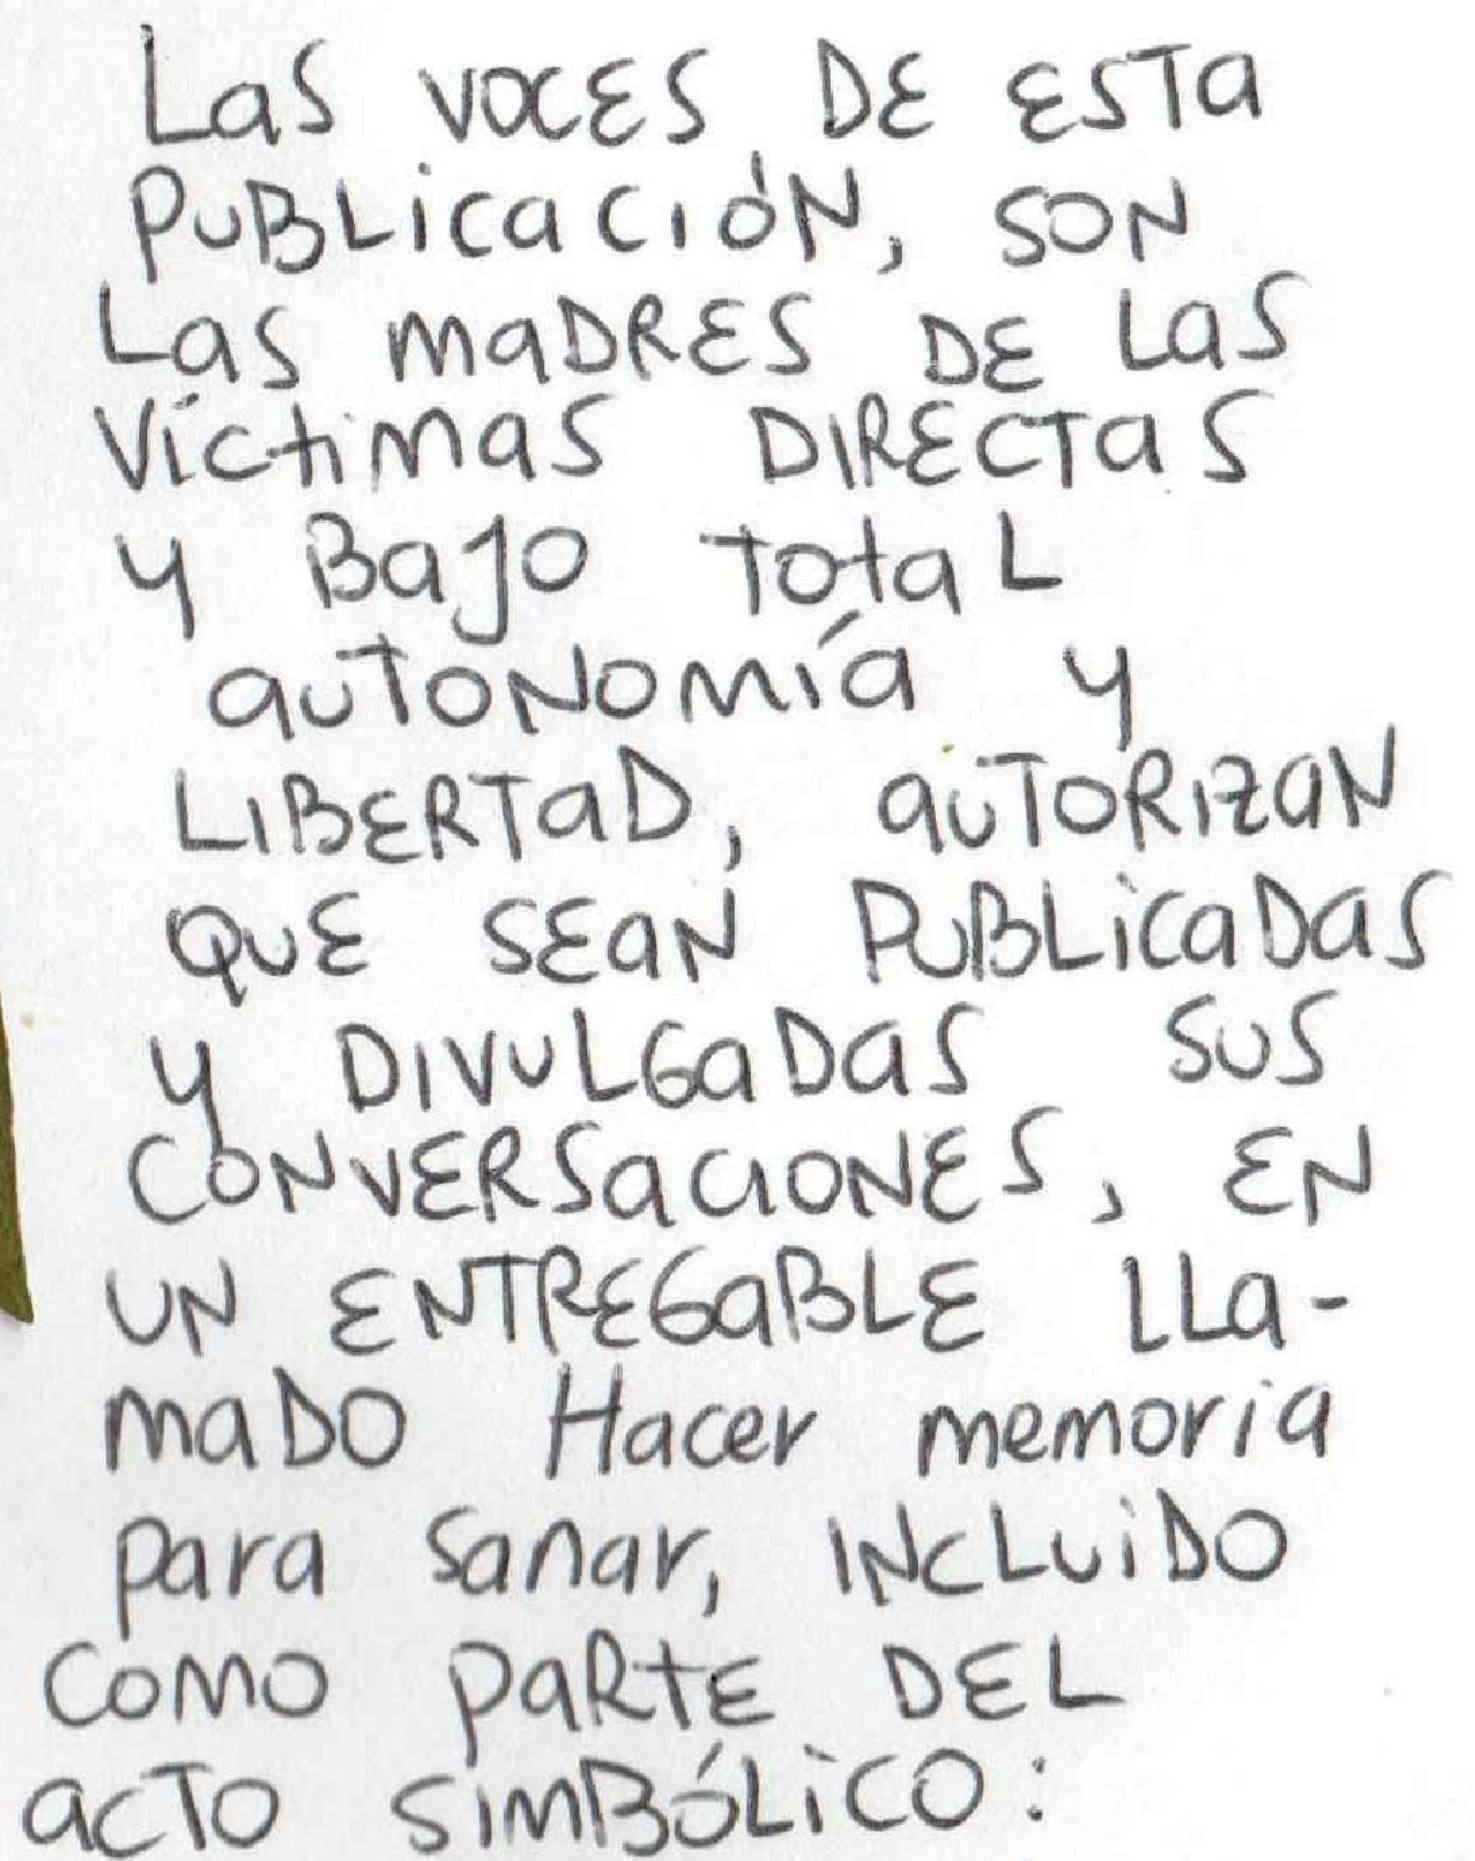 Las voces de esta
publicación, son
las madres de las
víctimas directas
y bajo total
autonomía y
libertad, autorizan
que sean publicadas
y divulgadas sus
conversaciones, en
un entregable lla-
mado Hacer memoria
para sanar, incluido
como parte del
acto simbólico: